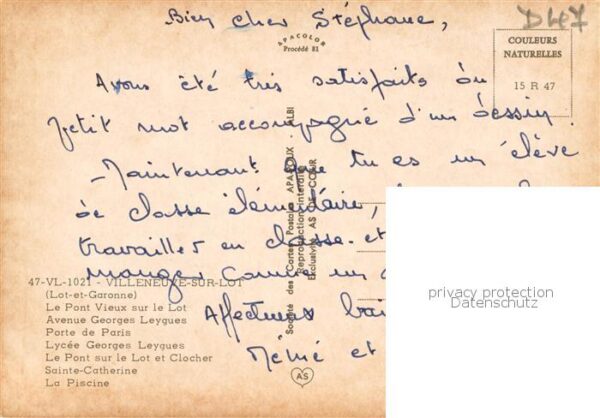 Bien cher Stéphane,
D47
APACOLOR
Procédé 81
COULEURS
NATURELLES
15 R 47
Avons été très satisfaits du
petit mot accompagné d'un dessin.
- Maintenant que tu es un élève
de classe élémentaire,
travailler en classe. et
manger comme un
Affectueux bai
Mémé et
Société des Cartes Postales APA-POUX - ALBI
Reproduction interdite
Exclusivité AS DE CŒUR
AS
47-VL-1021 - VILLENEUVE-SUR-LOT
(Lot-et-Garonne)
Le Pont Vieux sur le Lot
Avenue Georges Leygues
Porte de Paris
Lycée Georges Leygues
Le Pont sur le Lot et Clocher
Sainte-Catherine
La Piscine
privacy protection
Datenschutz